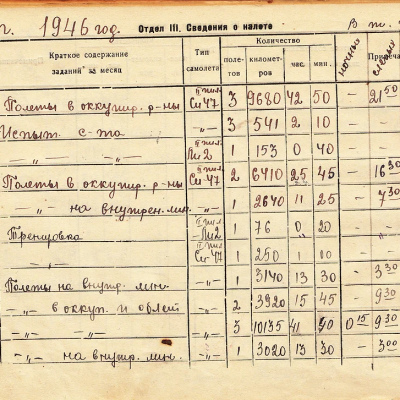 г. 1946 год. Отдел III. Сведения о налете
В т.
Краткое содержание заданий за месяц Тип самолета Количество ночью слепые Примеча
полетов километров час. мин.
Полеты в оккупир. р-ны II пил. Си-47 3 9680 42 50 — 21 50
Испыт. с-та -„- 3 541 2 10 —
-„- -„- II пил. Ли2 1 153 0 40 —
Полеты в оккупир. р-ны II пил. Си-47 2 6410 25 45 — 16 30
-„- на внутрен. лин. -„- 1 2640 11 25 — 7 30
Тренировка II пил. Ли2 1 76 0 20 —
-„- II пил. Си-47 1 250 1 00 —
Полеты на внутр. лин. -„- 1 3140 13 30 — 3 30
-„- в оккуп. и -„- 2 3920 15 45 — 9 30
-„- -„- -„- 3 10135 41 40 0 15 9 30
-„- на внутр. лин. -„- 1 3020 13 30 — 3 00